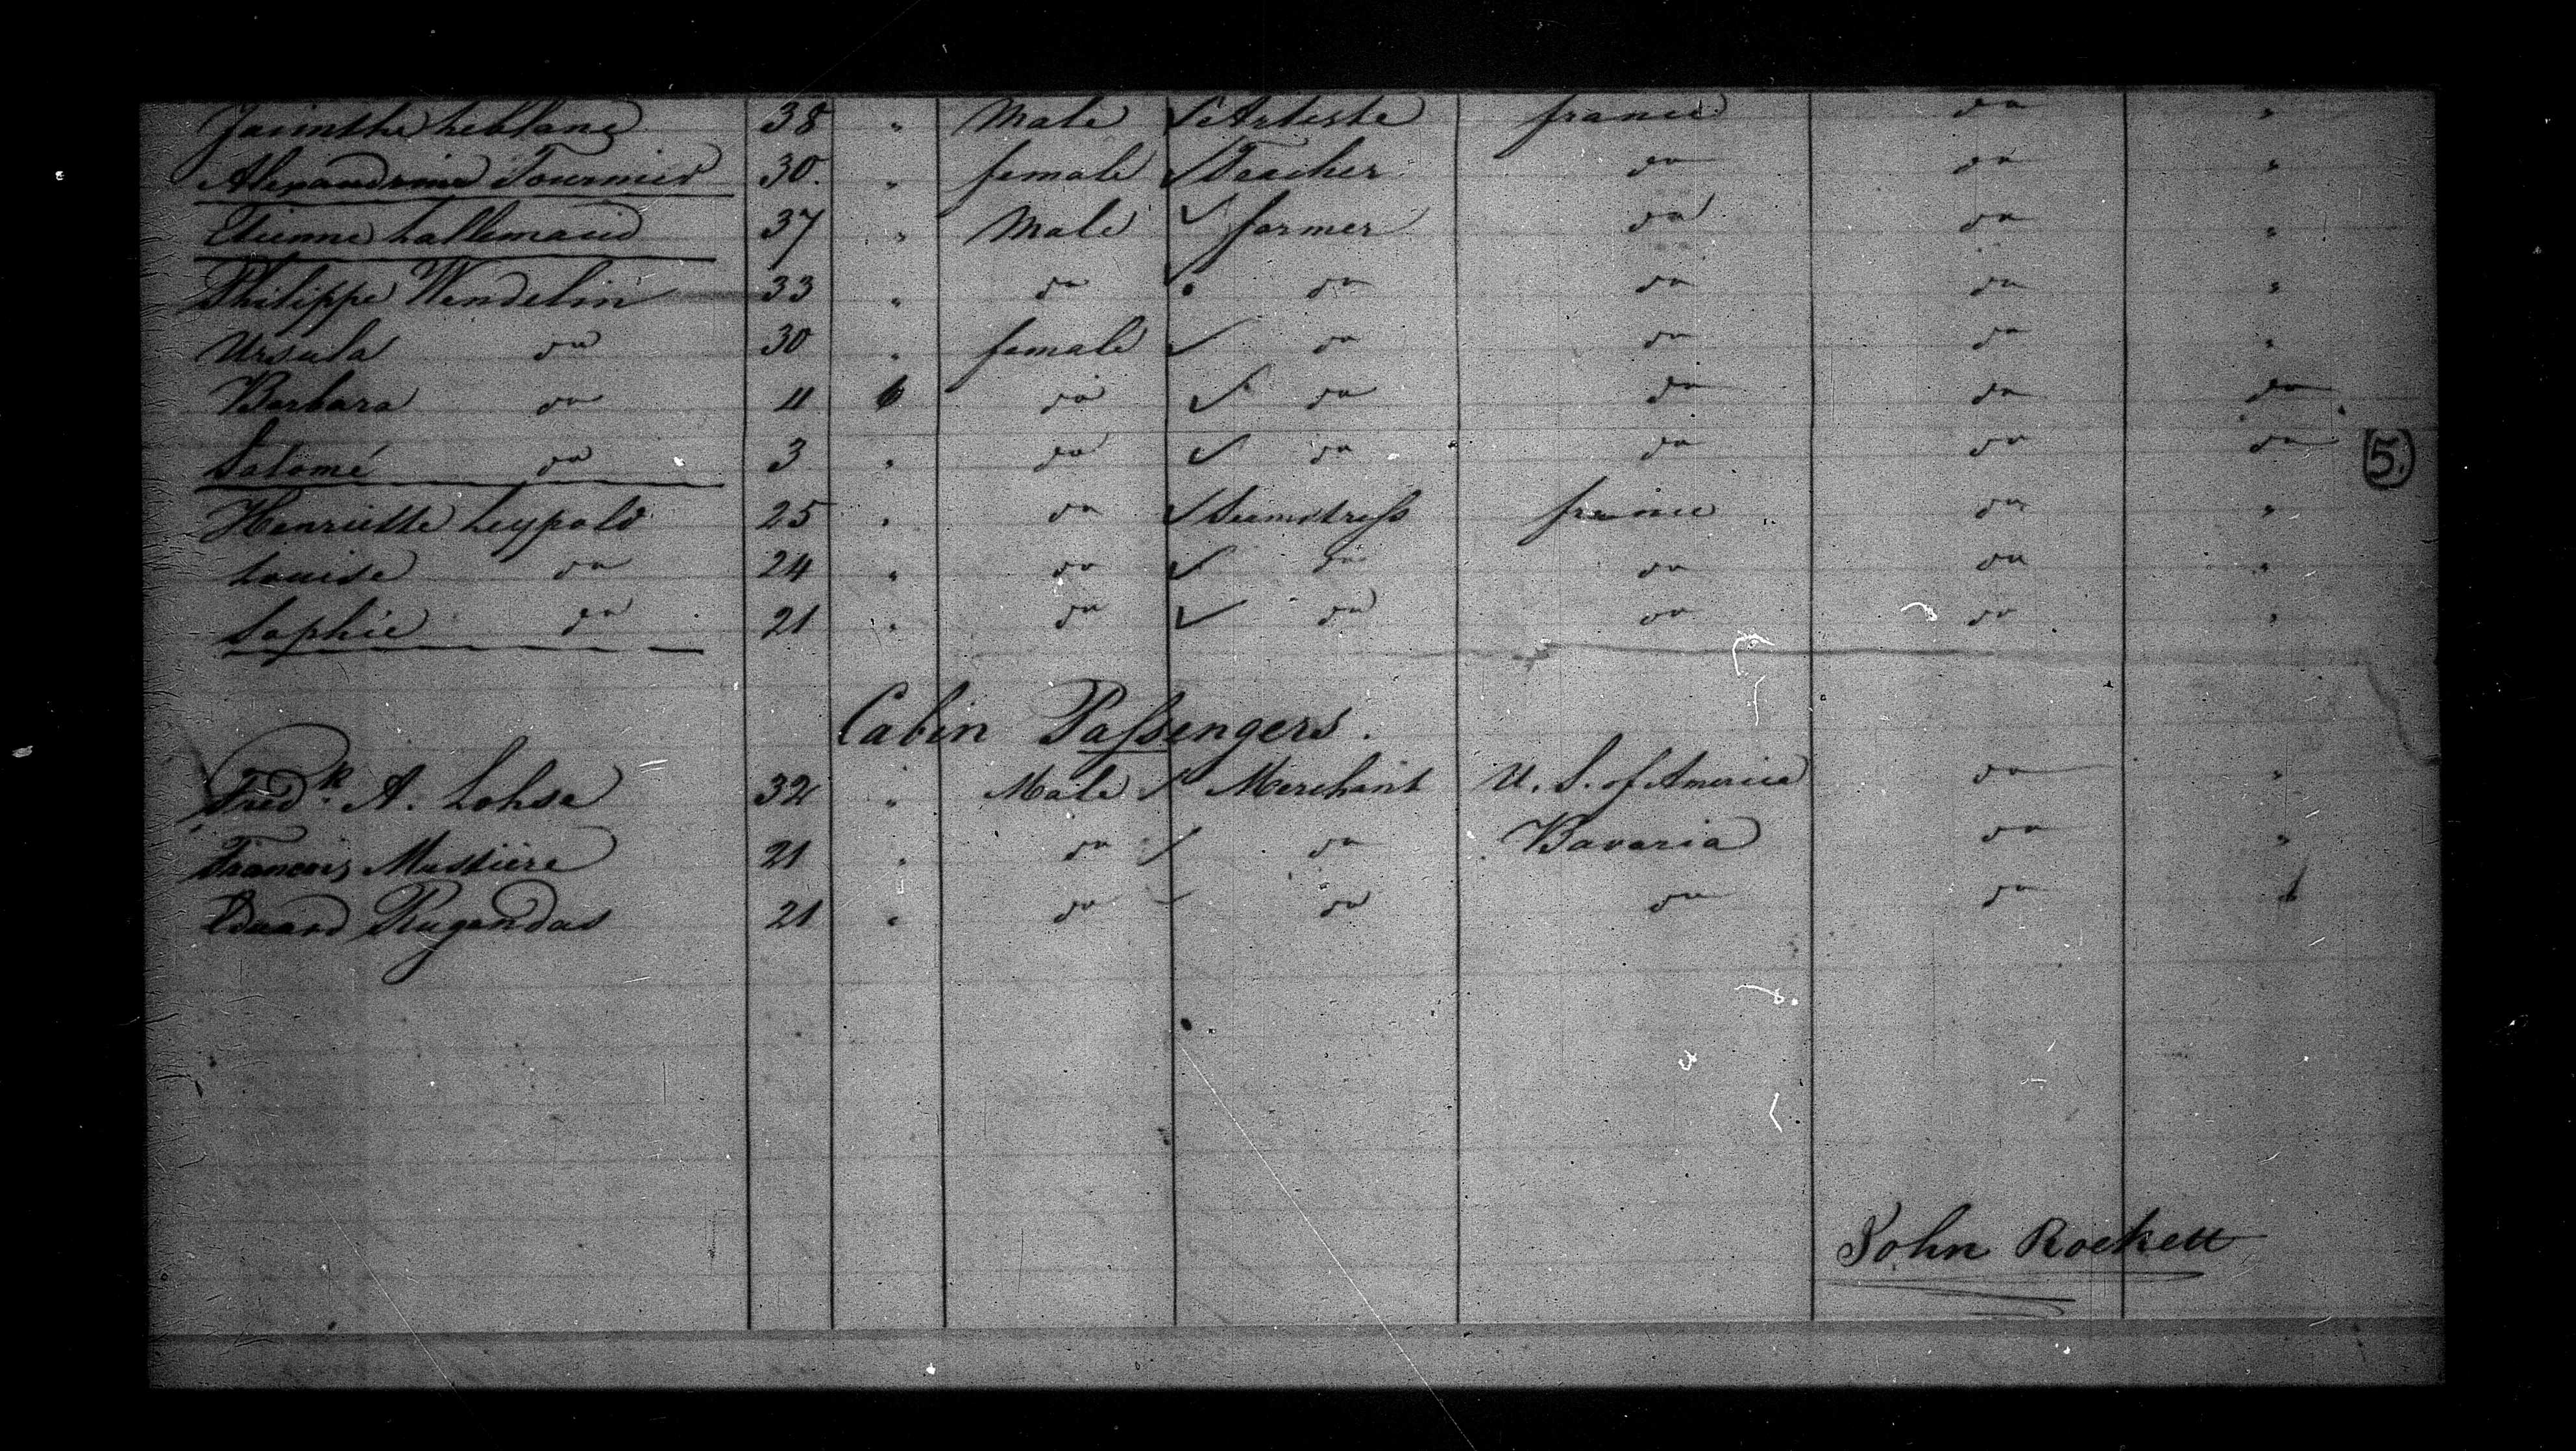 Jacinthe Leblanc 38 " Male Artiste france do "
Alexandrine Tournier 30 " female Teacher do do "
Etienne Lallemand 37 " Male farmer do do "
Philippe Wendelin 33 " do do do do "
Ursula do 30 " female do do do "
Barbara do do do do do do
Salomé do 3 " do do do do do
Henriette Leypold 25 " do Seemstress france do "
Louise do 24 " do do do do "
Sophie do 21 " do do do do "
5.
Cabin Passengers.
Fredk. A. Lohse 32 " Male Merchant U. S. of America do "
François Mussière 21 " do do Bavaria do "
Eduard Rugendas 21 " do do do do
John Rockett